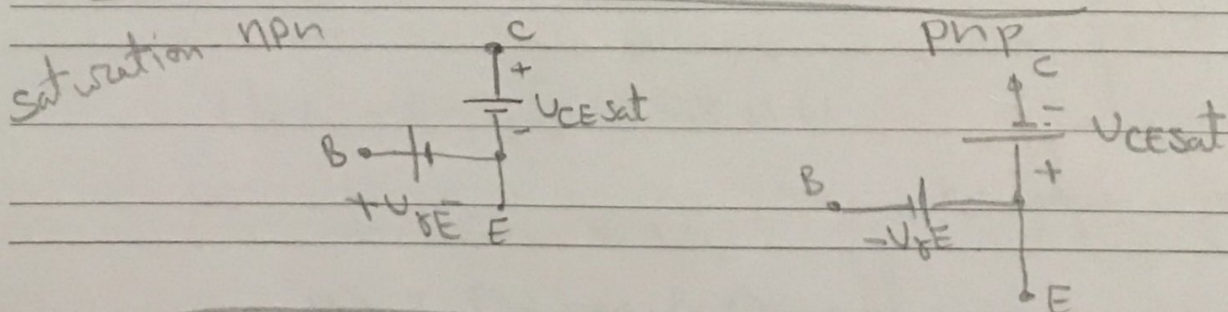 saturation npn
C
+
VCE sat
-
B
+VγE
E
pnp
C
-
VCEsat
+
B
-VγE
E